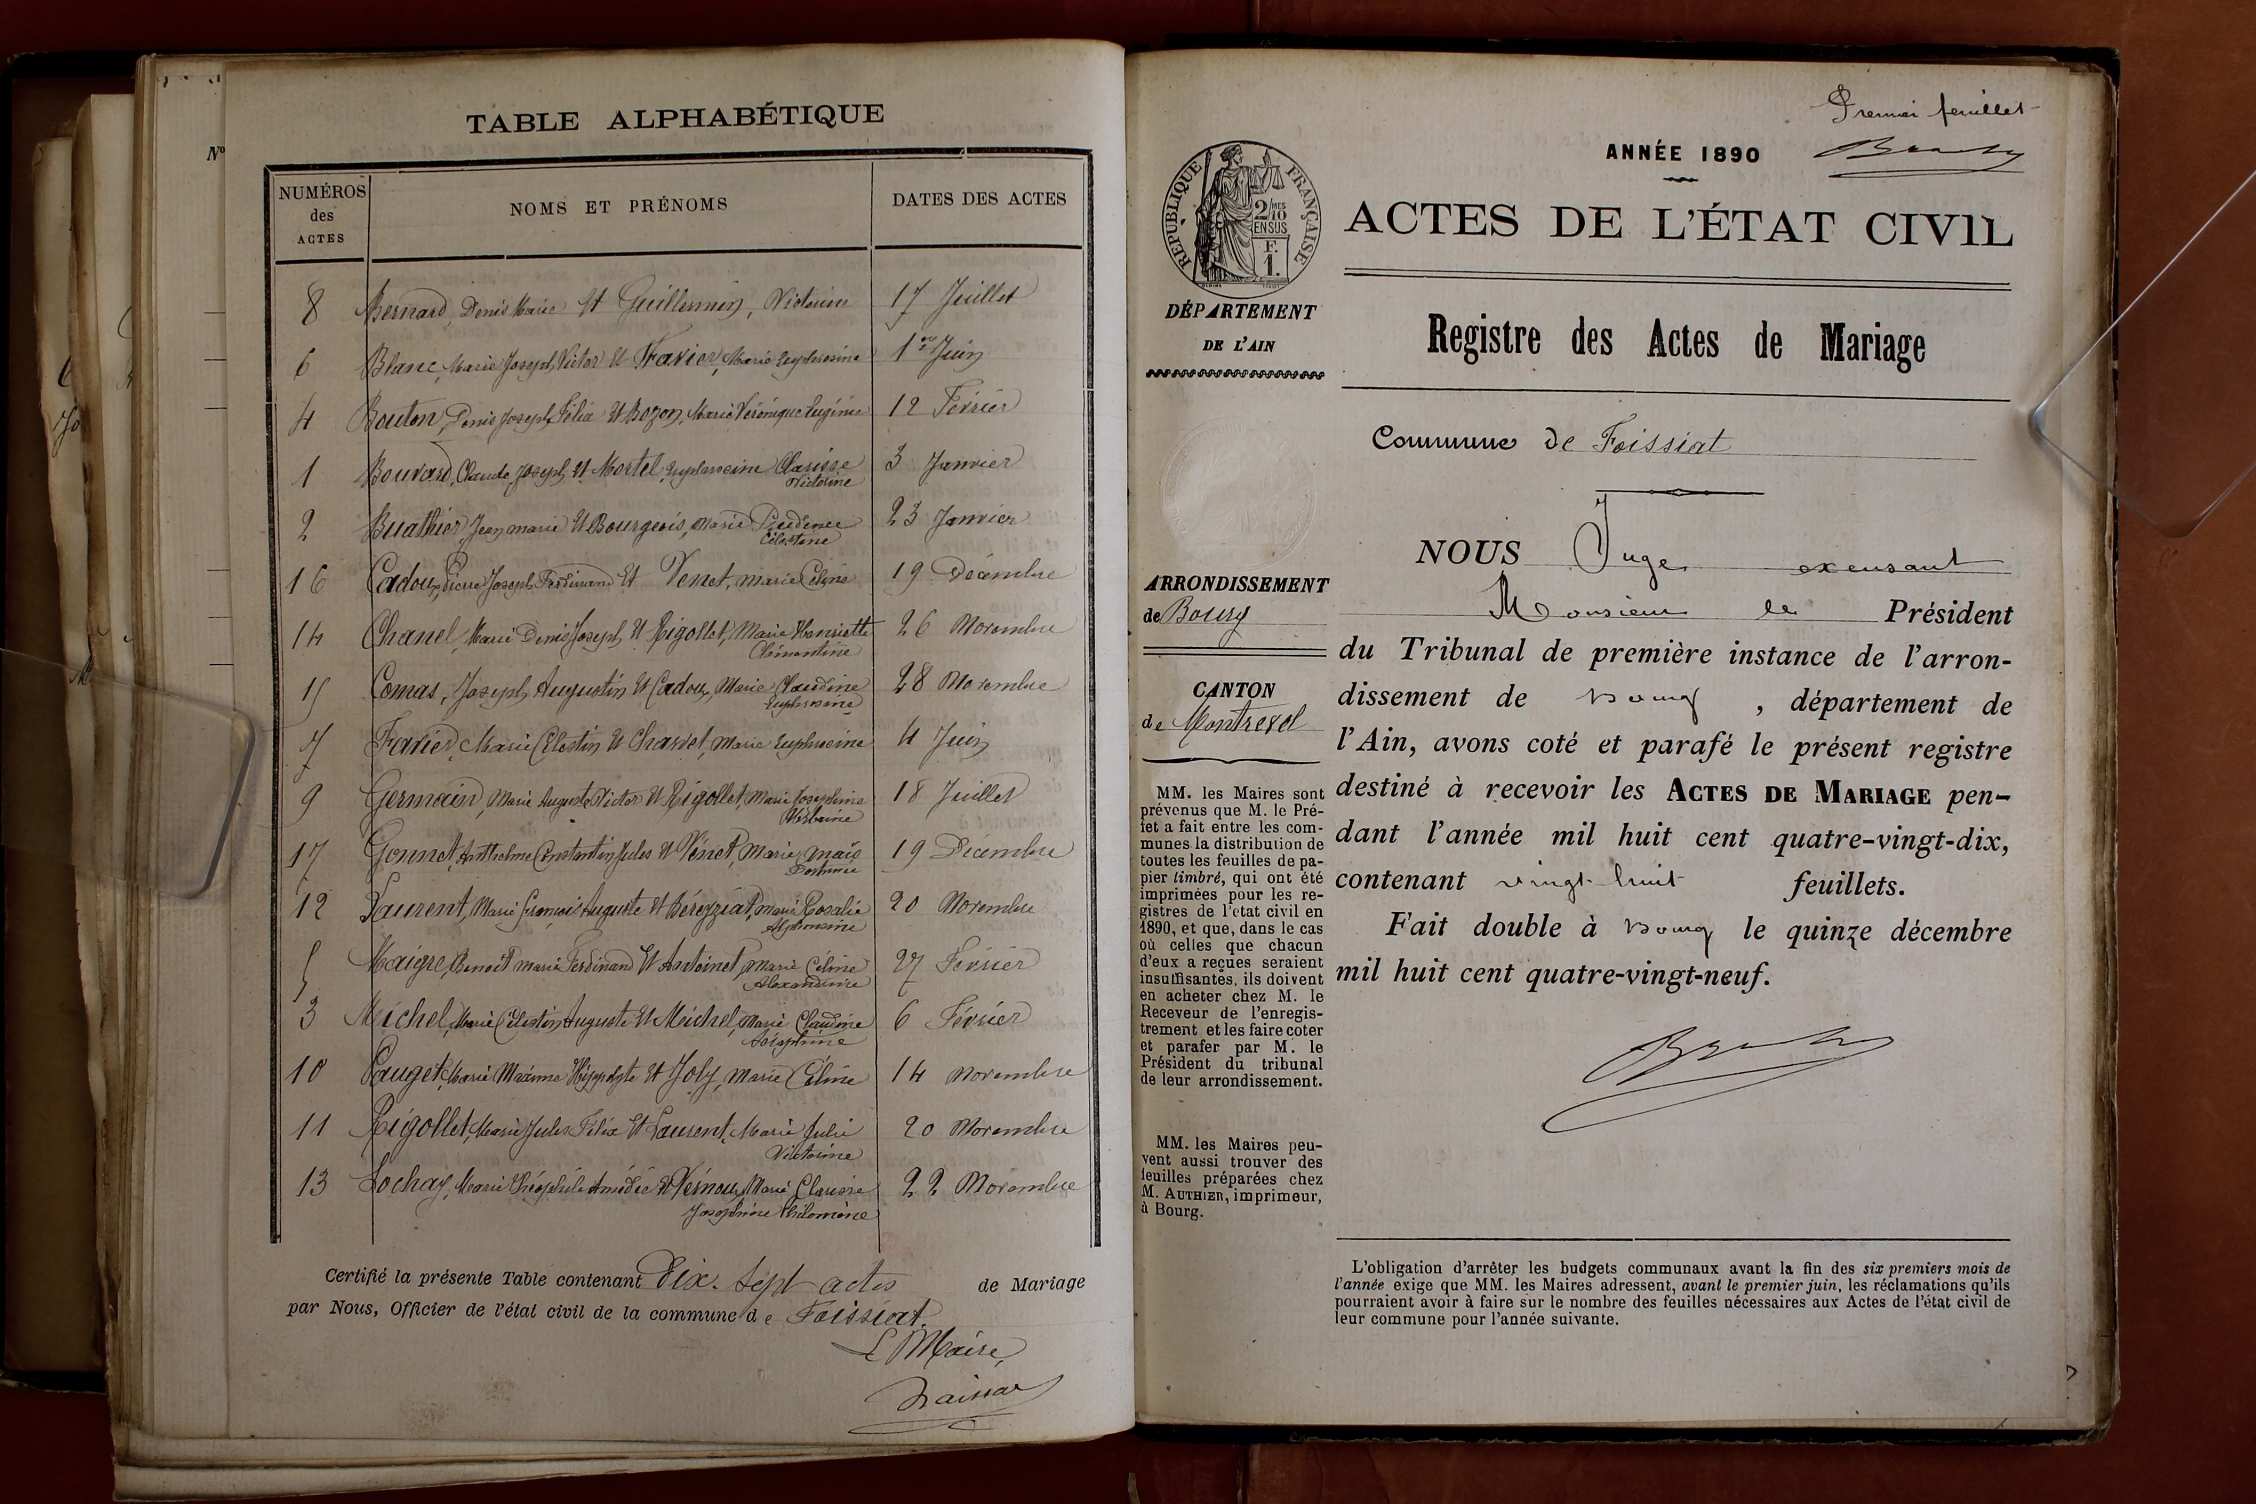 TABLE ALPHABÉTIQUE
Nº
NUMÉROS
des
ACTES
NOMS ET PRÉNOMS
DATES DES ACTES
8 Bernard, Denis Marie et Guillermin, Victorine 17 Juillet
6 Blanc, Marie Joseph Victor et Favier, Marie Euphrosine 1er Juin
4 Bouton, Denis Joseph Félix et Bozon, Marie Véronique Eugénie 12 Février
1 Bouvard, Claude Joseph et Mortel, Euphroseine Clarisse 3 Janvier
Victorine
2 Buathier, Jean marie et Bourgeois, Marie Prudence 23 Janvier
Célestine
16 Cadoux, Pierre Joseph Ferdinand et Venet, marie Céline 19 Décembre
14 Chanel, Marie Denis Joseph et Rigollet, Marie Henriette 26 Novembre
Clémentine
15 Comas, Joseph Augustin et Cadoux, Marie Claudine 28 Novembre
Euphrosine
7 Favier, Marie Célestin et Charvet, Marie Euphroseine 4 Juin
9 Germain, Marie Auguste Victor et Rigollet, Marie Josephine 18 Juillet
17 Gonnet, Anthelme Constantin Jules et Venet, Marie 19 Décembre
12 Laurent, Marie François Auguste et Béreyziat, marie Rosalie 20 Novembre
Alphonsine
5 Maigre, Benoît marie Ferdinand et Antoinet, Marie Céline 27 Février
Alexandrine
3 Michel, Marie Célestin Auguste et Michel, Marie Claudine 6 Février
Joséphine
10 Pauget, Marie Maxime Hippolyte et Joly, Marie Céline 14 Novembre
11 Rigollet, Marie Jules Félix et Laurent, Marie Julie 20 Novembre
Victorine
13 Sochay, Marie Théophile Amédée et Vernoux, Marie Clarisse 22 Novembre
Joséphine Philomène
Certifié la présente Table contenant Dix-Sept actes de Mariage
par Nous, Officier de l'état civil de la commune de Foissiat.
Le Maire,
Premier feuillet
ANNÉE 1890
RÉPUBLIQUE FRANÇAISE
2/10 MES
EN SUS
F.
1.
ACTES DE L'ÉTAT CIVIL
DÉPARTEMENT
DE L'AIN
Registre des Actes de Mariage
Commune de Foissiat
NOUS Juge excusant
Monsieur le Président
du Tribunal de première instance de l'arron-
dissement de Bourg, département de
l'Ain, avons coté et parafé le présent registre
destiné à recevoir les ACTES DE MARIAGE pen-
dant l'année mil huit cent quatre-vingt-dix,
contenant vingt-huit feuillets.
Fait double à Bourg le quinze décembre
mil huit cent quatre-vingt-neuf.
ARRONDISSEMENT
de Bourg
CANTON
de Montrevel
MM. les Maires sont
prévenus que M. le Pré-
fet a fait entre les com-
munes la distribution de
toutes les feuilles de pa-
pier timbré, qui ont été
imprimées pour les re-
gistres de l'état civil en
1890, et que, dans le cas
où celles que chacun
d'eux a reçues seraient
insuffisantes, ils doivent
en acheter chez M. le
Receveur de l'enregis-
trement et les faire coter
et parafer par M. le
Président du tribunal
de leur arrondissement.
MM. les Maires peu-
vent aussi trouver des
feuilles préparées chez
M. AUTHIER, imprimeur,
à Bourg.
L'obligation d'arrêter les budgets communaux avant la fin des six premiers mois de
l'année exige que MM. les Maires adressent, avant le premier juin, les réclamations qu'ils
pourraient avoir à faire sur le nombre des feuilles nécessaires aux Actes de l'état civil de
leur commune pour l'année suivante.